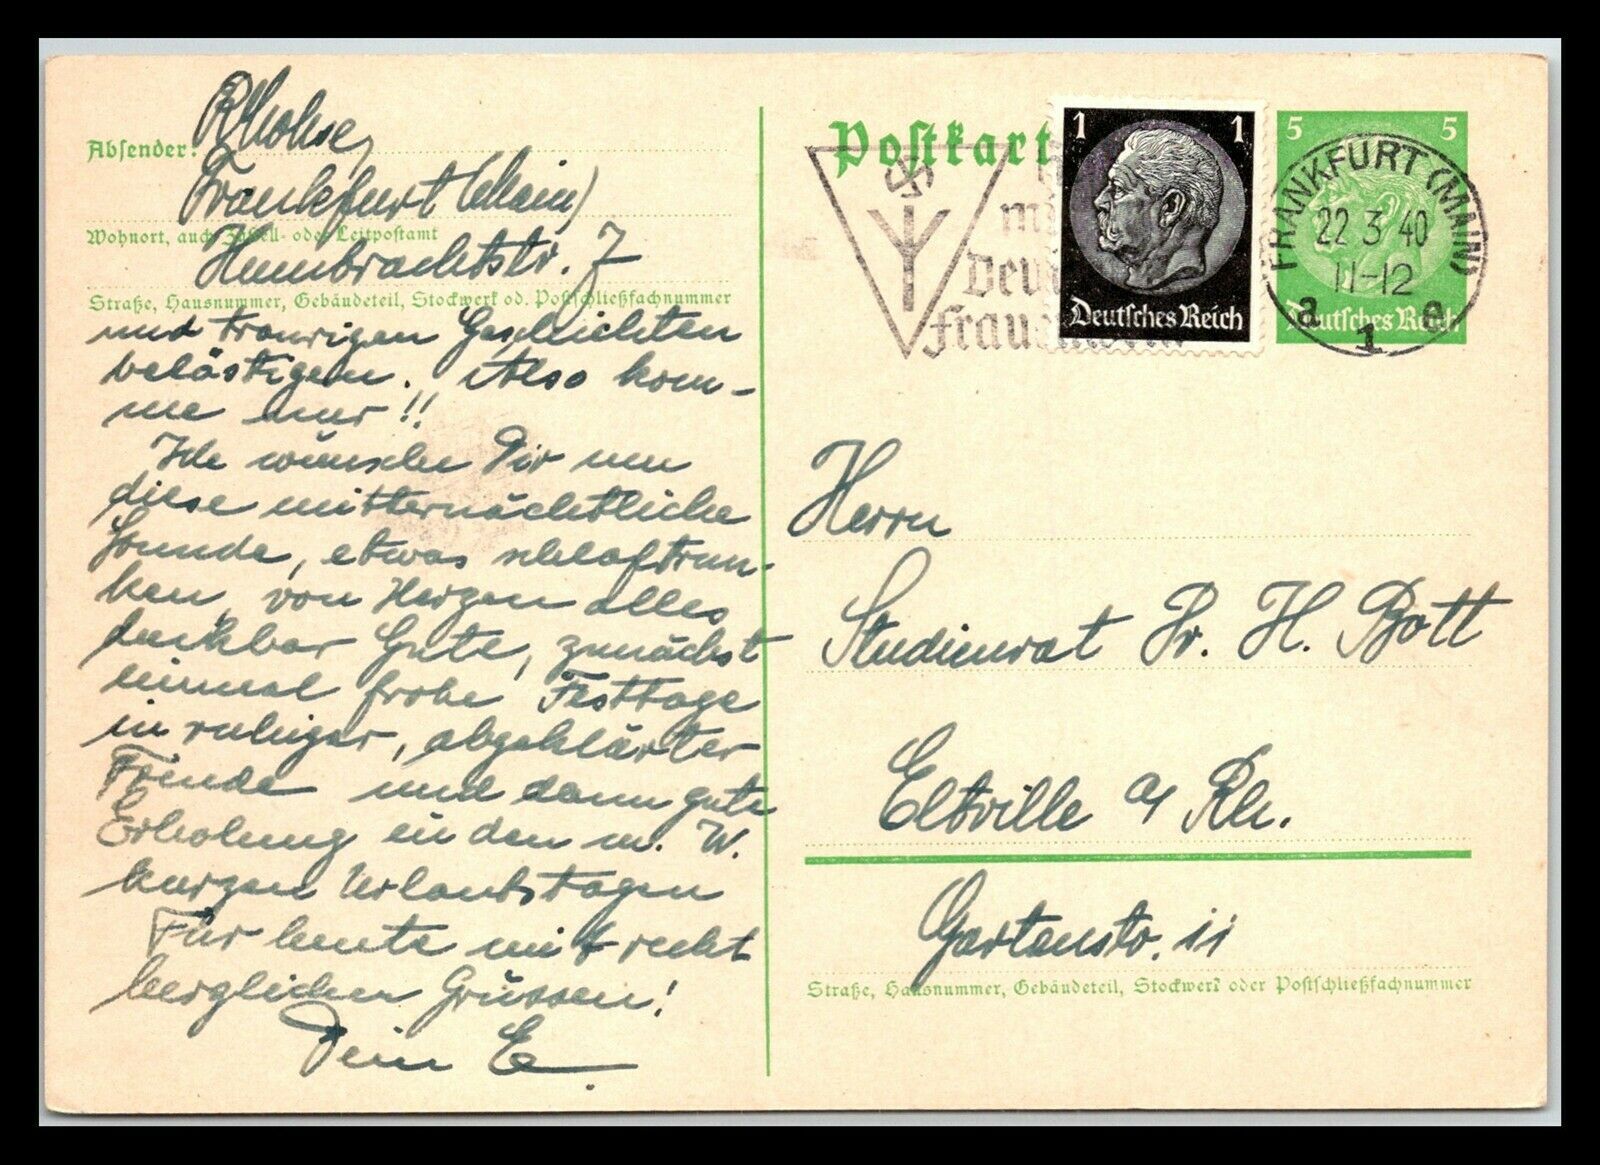 Absender:
Frankfurt (Main)
Wohnort, auch Zustell- oder Leitpostamt
Humbrachtstr. 7
Straße, Hausnummer, Gebäudeteil, Stockwerk od. Postschließfachnummer
und traurigen Geschichten
belästigen. Also kom-
me nur!!
Ich wünsche Dir um
diese mitternächtliche
Stunde, etwas schlaftrun-
ken, von Herzen alles
denkbar Gute, zunächst
einmal frohe Festtage
in ruhiger, abgeklärter
und dann gute
Erholung in den m. W.
kurzen Urlaubstagen
Für heute mit recht
herzlichen Grüssen!
Dein E.
Postkart
1 1
Deutsches Reich
5 5
Deutsches Reich
FRANKFURT (MAIN)
22 3 40
11-12
a 1 e
Deu
Frau
Herrn
Studienrat Dr. H. Bott
Eltville a/ Rh.
Gartenstr. 11
Straße, Hausnummer, Gebäudeteil, Stockwerk oder Postschließfachnummer